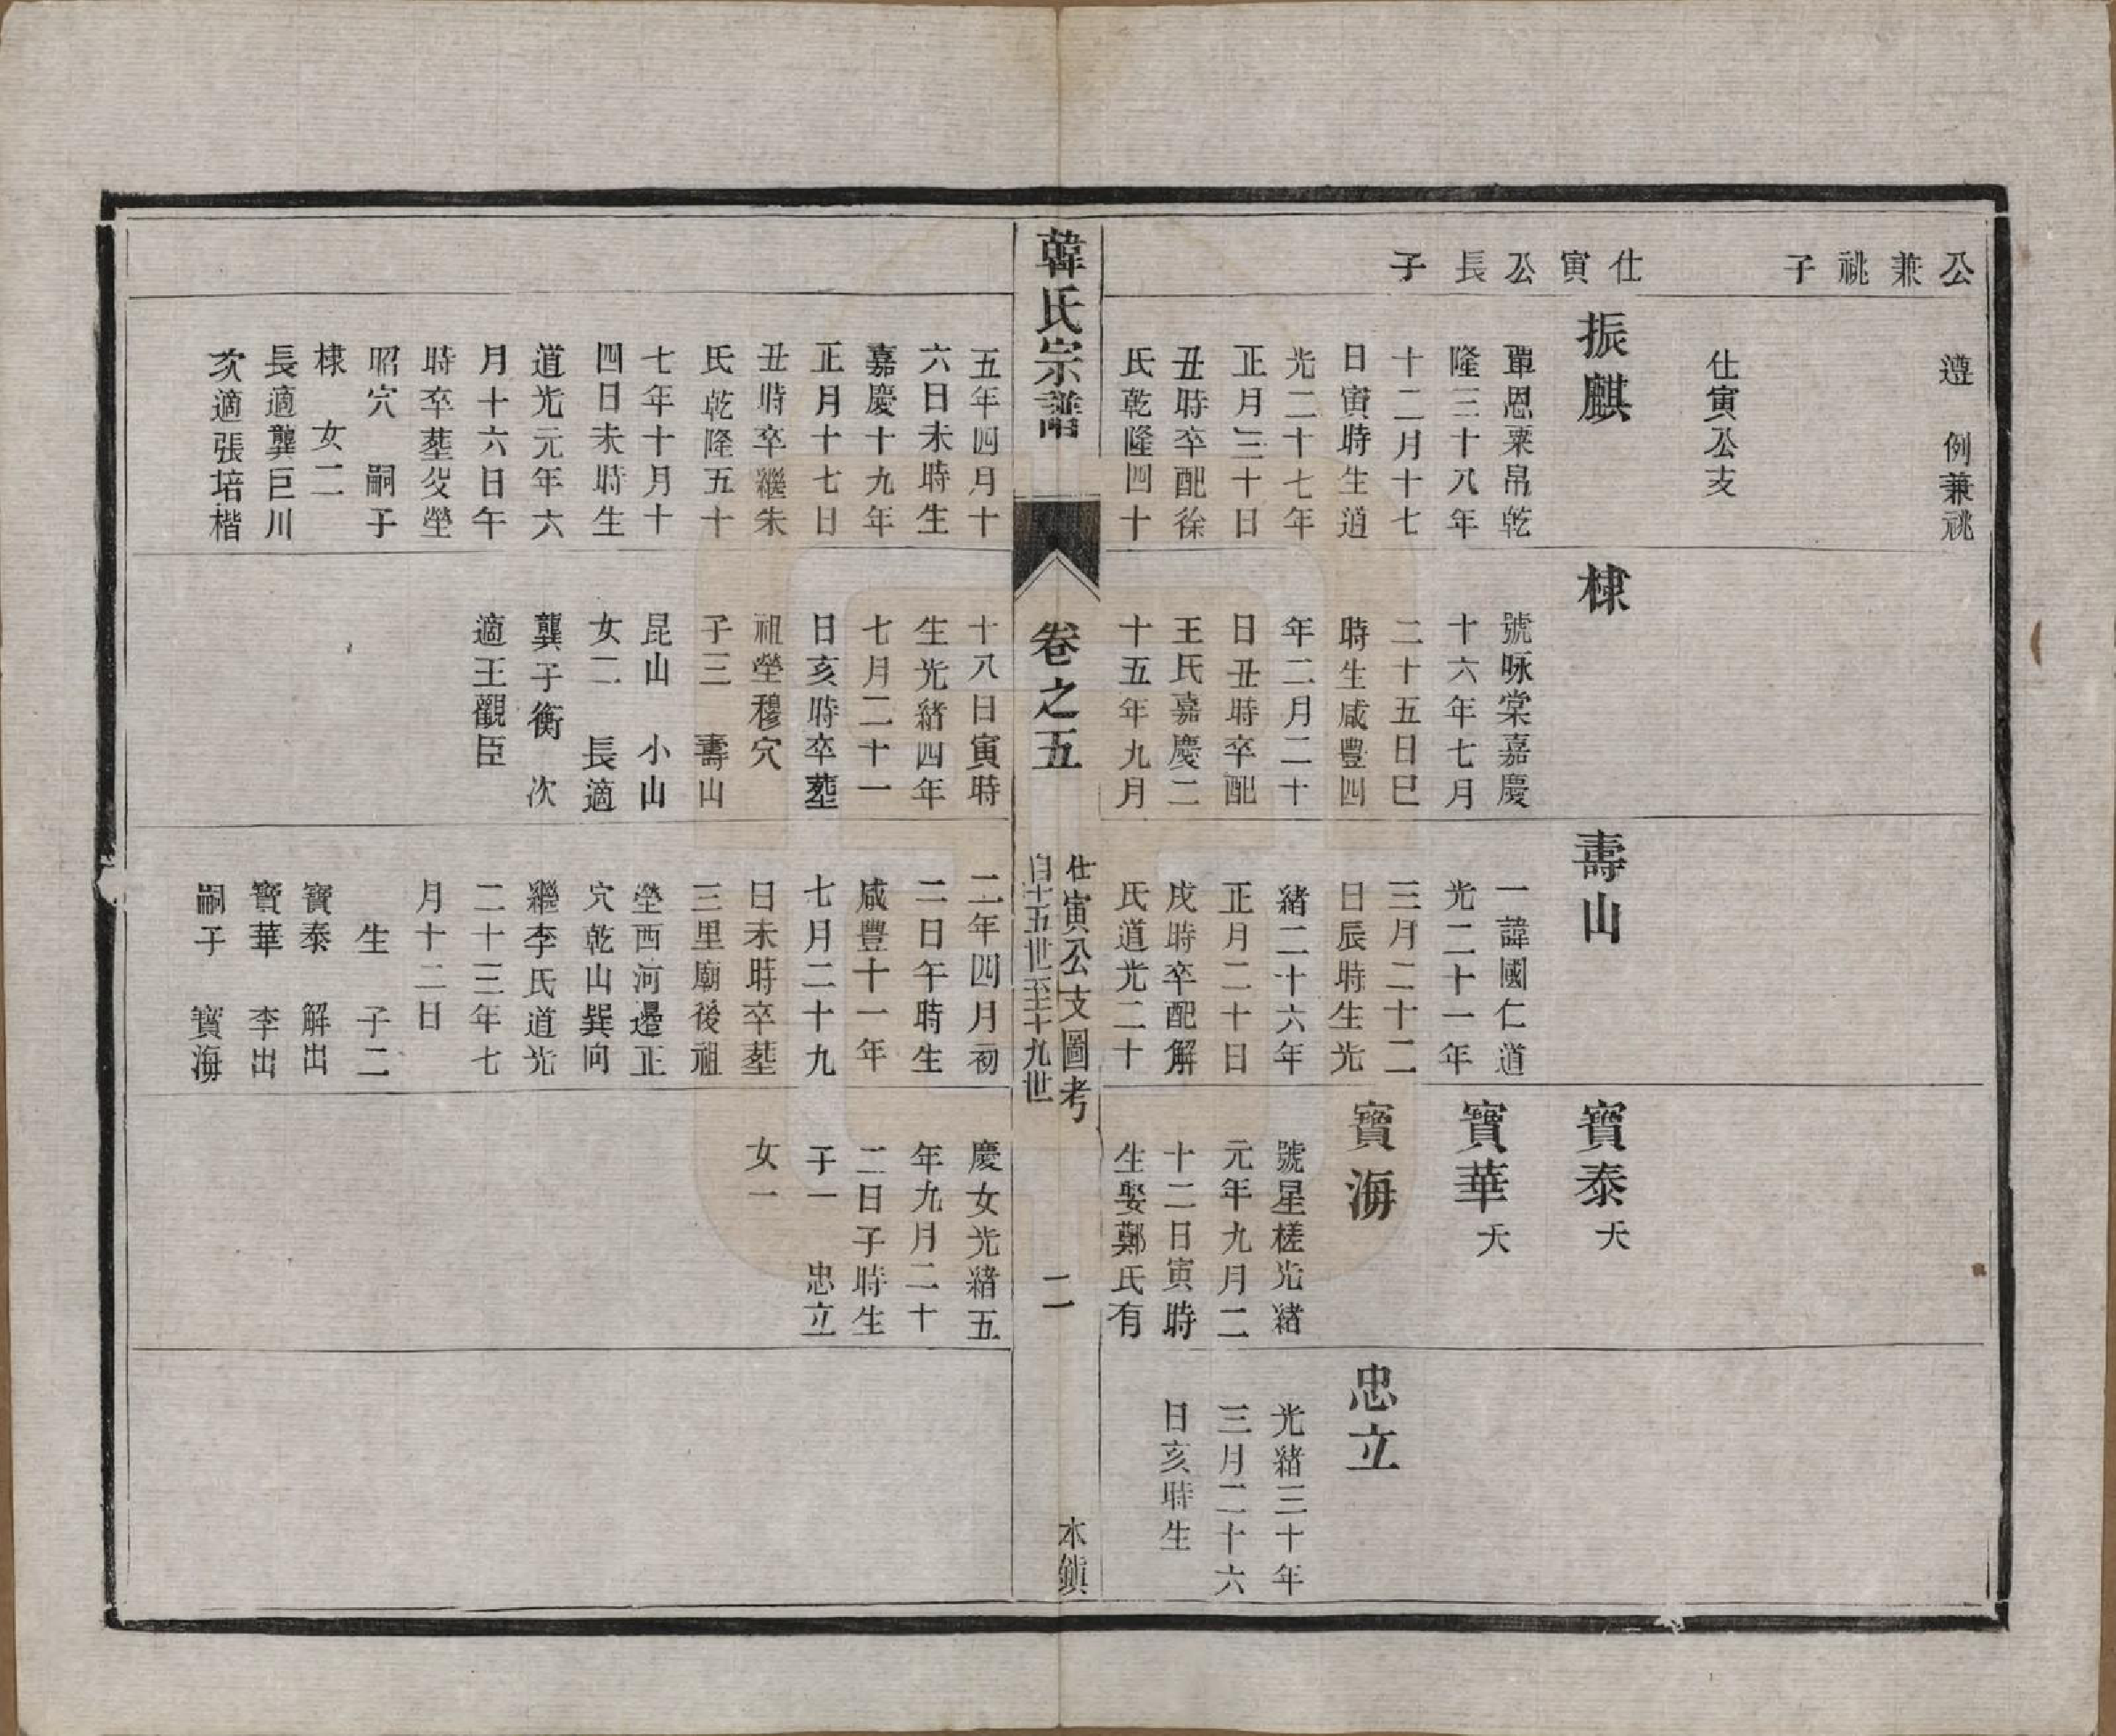 公兼祧子
仕寅公長子
遵 例兼祧
仕寅公支
振麒
覃恩粟帛乾
隆三十八年
十二月十七
日寅時生道
光二十七年
正月三十日
丑時卒配徐
氏乾隆四十
五年四月十
六日未時生
嘉慶十九年
正月十七日
丑時卒繼朱
氏乾隆五十
七年十月十
四日未時生
道光元年六
月十六日午
時卒塟父塋
昭穴 嗣子
棣 女二
長適龔巨川
次適張培楷
棣
號咏棠嘉慶
十六年七月
二十五日巳
時生咸豐四
年二月二十
日丑時卒配
王氏嘉慶二
十五年九月
十八日寅時
生光緒四年
七月二十一
日亥時卒塟
祖塋穆穴
子三 壽山
昆山 小山
女二 長適
龔子衡 次
適王觀臣
壽山
一諱國仁道
光二十一年
三月二十二
日辰時生光
緒二十六年
正月二十日
戌時卒配解
氏道光二十
二年四月初
二日午時生
咸豐十一年
七月二十九
日未時卒塟
三里廟後祖
塋西河邊正
穴乾山巽向
繼李氏道光
二十三年七
月十二日
生 子二
寶泰 解出
寶華 李出
嗣子 寶海
寶泰 夭
寶華 夭
寶海
號星槎光緒
元年九月二
十二日寅時
生娶鄭氏有
慶女光緒五
年九月二十
二日子時生
子一 忠立
女一
忠立
光緒三十年
三月二十六
日亥時生
韓氏宗譜
卷之五
仕寅公支圖考
自十五世至十九世
二
木鎮